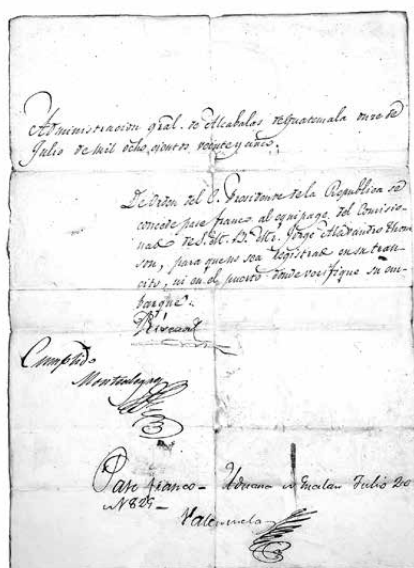 Administracion gral. de Alcabalas de Guatemala onze de
Julio de mil ocho cientos veinte y cinco.
De orden del C. Presidente de la Republica se
concede pase franco al equipage del Comisio-
nado de S. M. B. Mr. Jorge Alexandro Thom
son, para que no sea registrado en su tran-
cito, ni en el puerto donde verifique su em-
barque.
Cumplido
Montealegre
Pase franco - Aduana Julio 20
1825-
Valenzuela